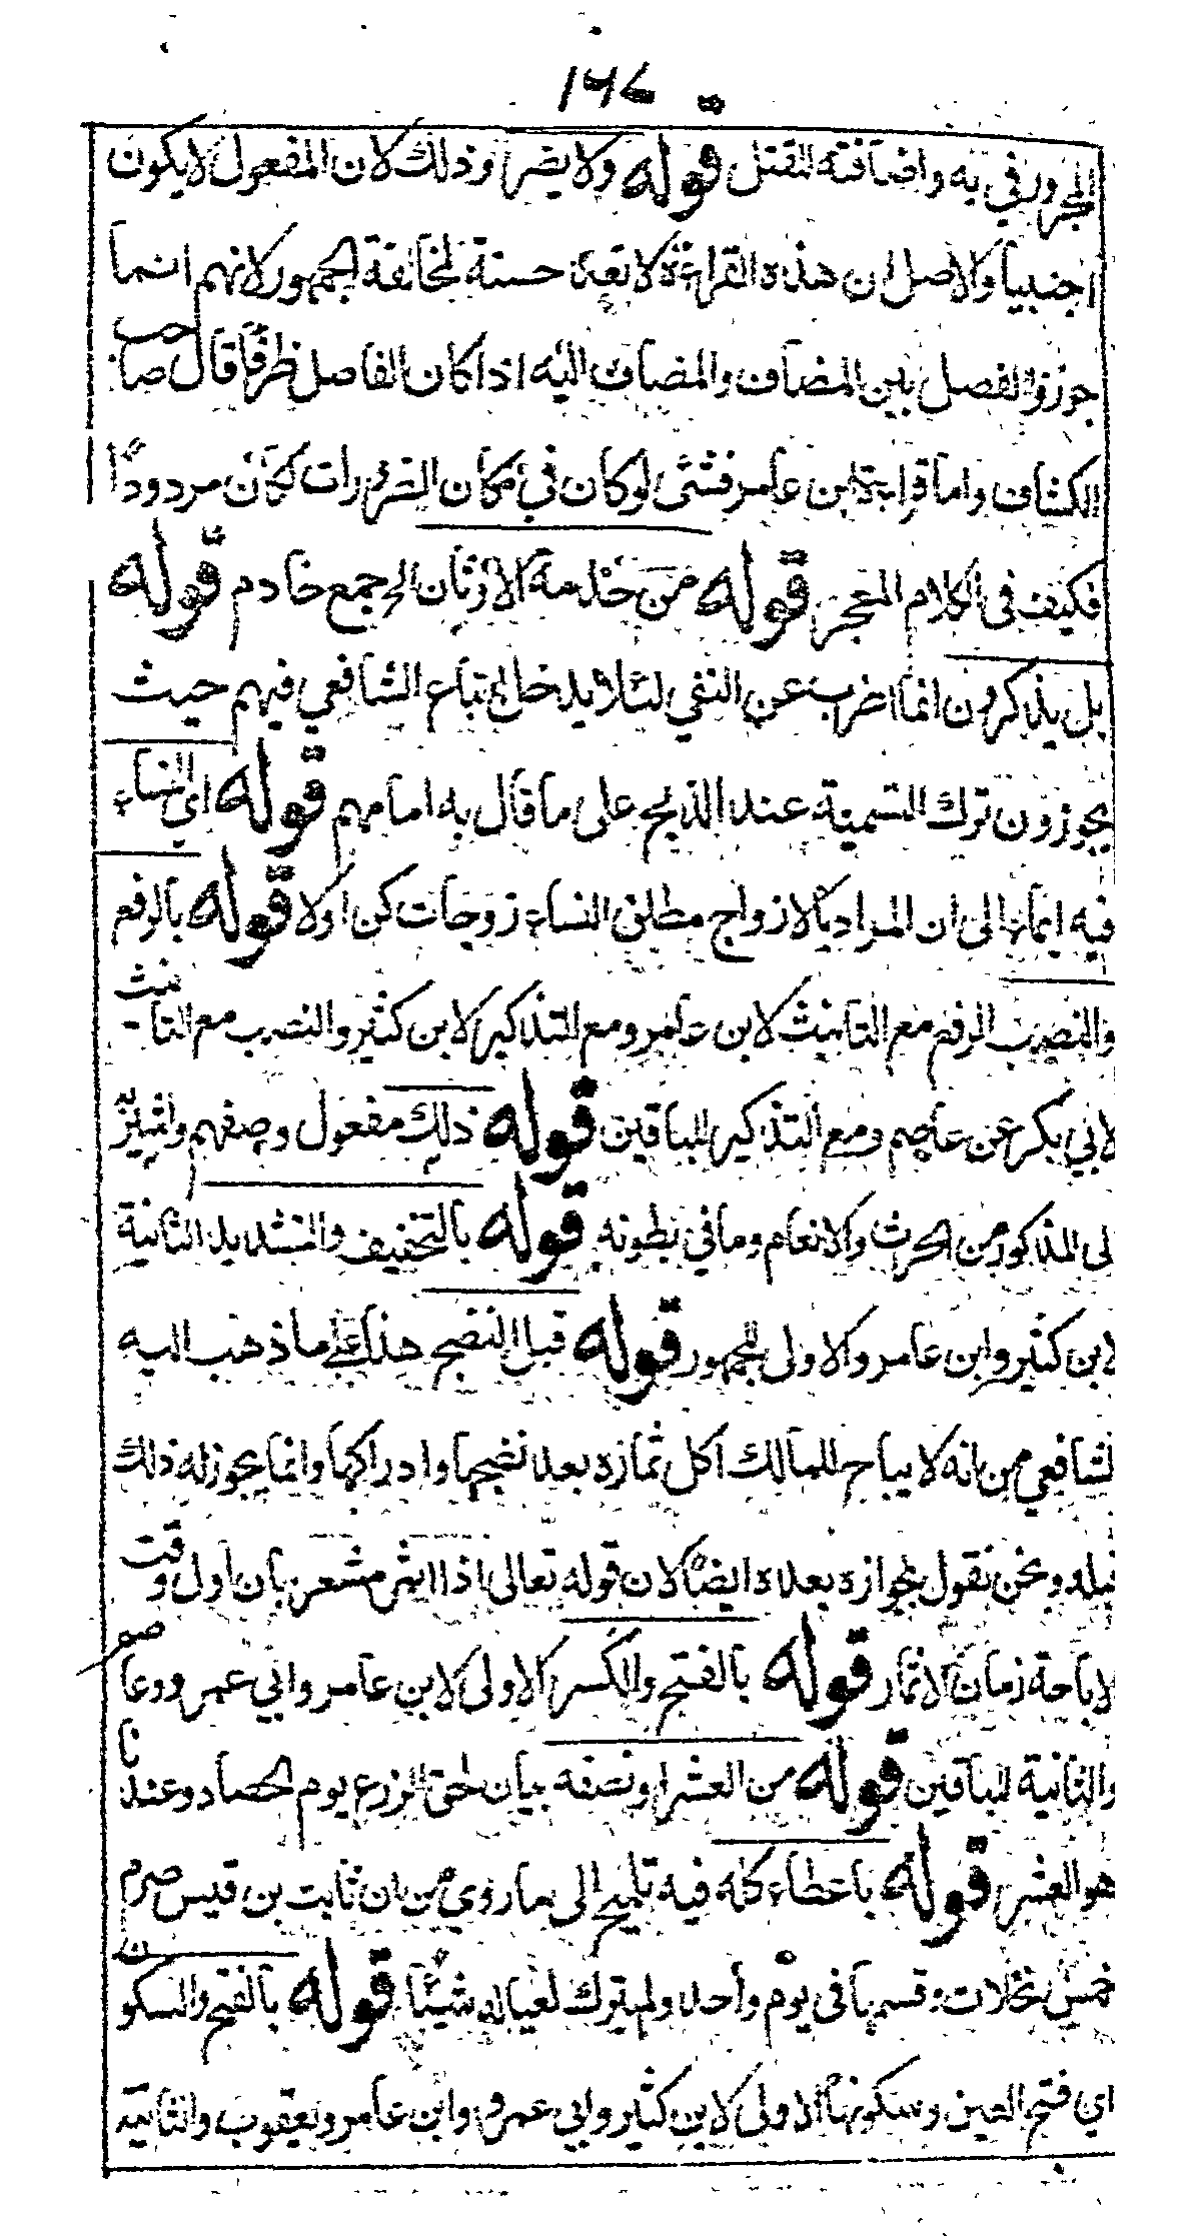 ١٤٧
المجرور في به واضافته القتل قوله ولا يضر وذلك لان المفعول لا يكون
اجنبيا والاصل ان هذه القراءة لا تعد حسنة لمخالفة الجمهور لانهم انما
جوزوا الفصل بين المضاف والمضاف اليه اذا كان الفاصل ظرفا قال صاحب
الكشاف واما قراءة ابن عامر فشئ لو كان في مكان الضرورات لكان مردودا
فكيف في الكلام المعجز قوله من خدمة الاوثان الخ جمع خادم قوله
بل يذكرون انما اضرب عن النفي لئلا يدخل اتباع الشافعي فيهم حيث
يجوزون ترك التسمية عند الذبح على ما قال به امامهم قوله اي النساء
فيه ايماء الى ان المراد بالازواج مطلق النساء زوجات كن اولا قوله بالرفع
والنصب الرفع مع التانيث لابن عامر ومع التذكير لابن كثير والنصب مع التانيث
لابي بكر عن عاصم ومع التذكير للباقين قوله ذلك مفعول وصفهم واشير
لى المذكور من الحرث والانعام وما في بطونه قوله بالتخفيف والتشديد الثانية
لابن كثير وابن عامر والاولى للجمهور قوله قبل النضج هذا على ما ذهب اليه
لشافعي من انه لا يباح للمالك اكل ثماره بعد نضجها وادراكها وانما يجوز له ذلك
قبله ونحن نقول بجوازه بعده ايضا لان قوله تعالى اذا اثمر مشعر بان اول وقت
لاباحة زمان الاثمار قوله بالفتح والكسر الاولى لابن عامر وابي عمرو وعاصم
والثانية للباقين قوله من العشر او نصفه بيان لحق الزرع يوم الحصاد وعندنا
هو العشر قوله باعطاء كله فيه تلميح الى ما روي من ان ثابت بن قيس صرم
خمس نخلات وقسمها في يوم واحد ولم يترك لعياله شيئا قوله بالفتح والسكون
اي فتح العين وسكونها الاولى لابن كثير وابي عمرو وابن عامر ويعقوب والثانية